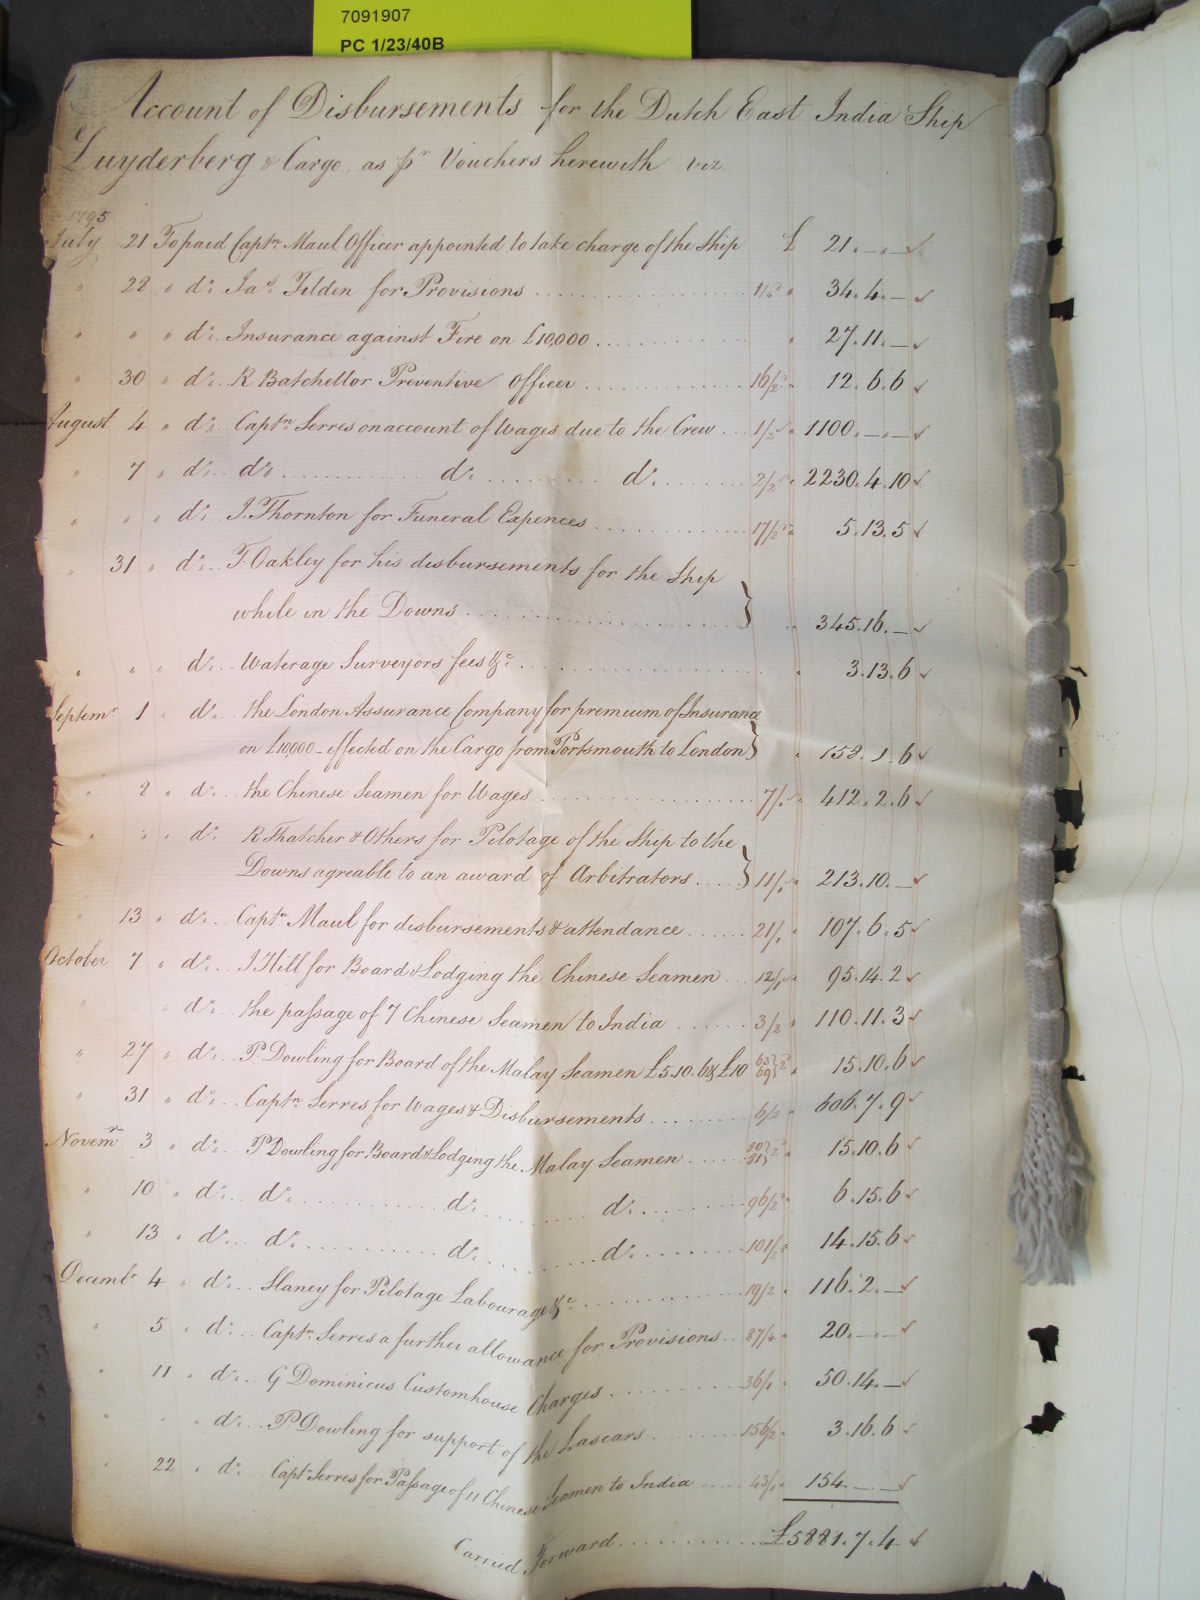 7091907
PC 1/23/40B
Account of Disbursements for the Dutch East India Ship
Zuyderberg & Cargo as pr Vouchers herewith viz.
1795
July 21 To paid Captn. Maul Officer appointed to take charge of the Ship £ 21.—.—
" 28 " do. Jas. Tilden for Provisions 34.4.—
" " " do. Insurance against Fire on £10,000 27.11.—
" 30 " do. R Batchellor Preventive Officer 16/2 12.6.6
August 4 " do. Captn. Serres on account of Wages due to the Crew 1/2 1100.—.—
" 7 " do. do. do. do. 2/2 2230.4.10
" " " do. J. Thornton for Funeral Expences 17/2 5.13.5
" 31 " do. T. Oakley for his disbursements for the Ship
while in the Downs } 345.16.—
" " " do. Waterage Surveyors fees &c. 3.13.6
Septemr 1 " do. the London Assurance Company for premium of Insurance
on £10000 – effected on the Cargo from Portsmouth to London } 158.1.6
" 2 " do. the Chinese Seamen for Wages 7/1 412.2.6
" " " do. R Thatcher & Others for Pilotage of the Ship to the
Downs agreable to an award of Arbitrators } 11/1 213.10.—
13 " do. Captn Maul for disbursements & attendance 21/1 107.6.5
October 7 " do. J Hill for Board & Lodging the Chinese Seamen 12/1 95.14.2
" do. the passage of 7 Chinese Seamen to India 3/2 110.11.3
" 27 " do. P. Dowling for Board of the Malay Seamen £5.10.6 & £10 15.10.6
" 31 " do. Captn. Serres for Wages & Disbursements 6/2 606.7.9
Novemr 3 " do. P Dowling for Board & Lodging the Malay Seamen 15.10.6
" 10 " do. do. do. do. 96/2 6.15.6
" 13 " do. do. do. do. 101/2 14.15.6
Decembr 4 " do. Slaney for Pilotage Labourage &c. 19/2 116.2.—
" 5 " do. Captn. Serres a further allowance for Provisions 20.—.—
" 11 " do. G Dominicus Customhouse Charges 36/1 50.14.—
" " do. P Dowling for support of the Lascars 156/2 3.16.6
" 22 " do. Captn. Serres for Passage of 11 Chinese Seamen to India 43/1 154.—.—
Carried Forward £5881.7.4